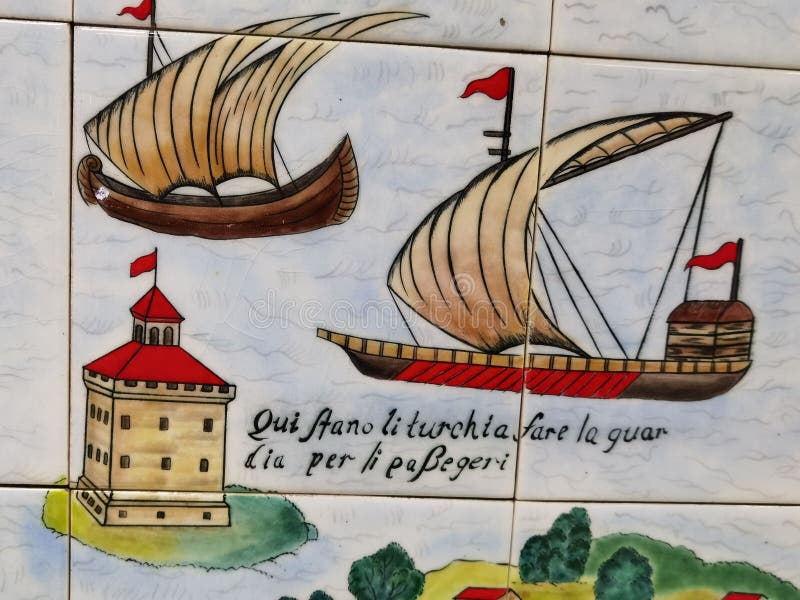 Qui stano li turchi a fare la guar
dia per li paßegeri